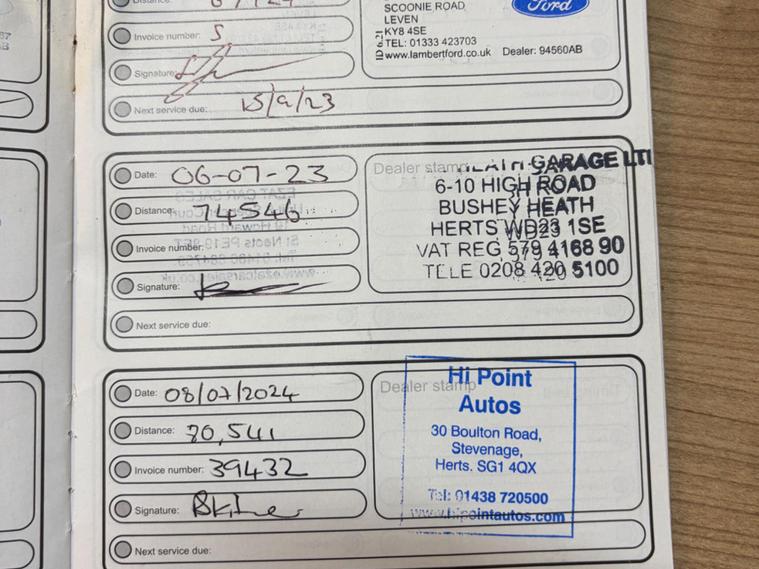 Distance:
Invoice number: 5
Signature:
Next service due: 15/9/23
SCOONIE ROAD
LEVEN
KY8 4SE
TEL: 01333 423703
www.lambertford.co.uk Dealer: 94560AB
Ford
Date: 06-07-23
Distance: 74546
Invoice number:
Signature:
Next service due:
Dealer stamp
HEATH GARAGE LTD
6-10 HIGH ROAD
BUSHEY HEATH
HERTS WD23 1SE
VAT REG 579 4168 90
TELE 0208 420 5100
Date: 08/07/2024
Distance: 80,541
Invoice number: 39432
Signature:
Next service due:
Dealer stamp
Hi Point
Autos
30 Boulton Road,
Stevenage,
Herts. SG1 4QX
Tel: 01438 720500
www.hipointautos.com